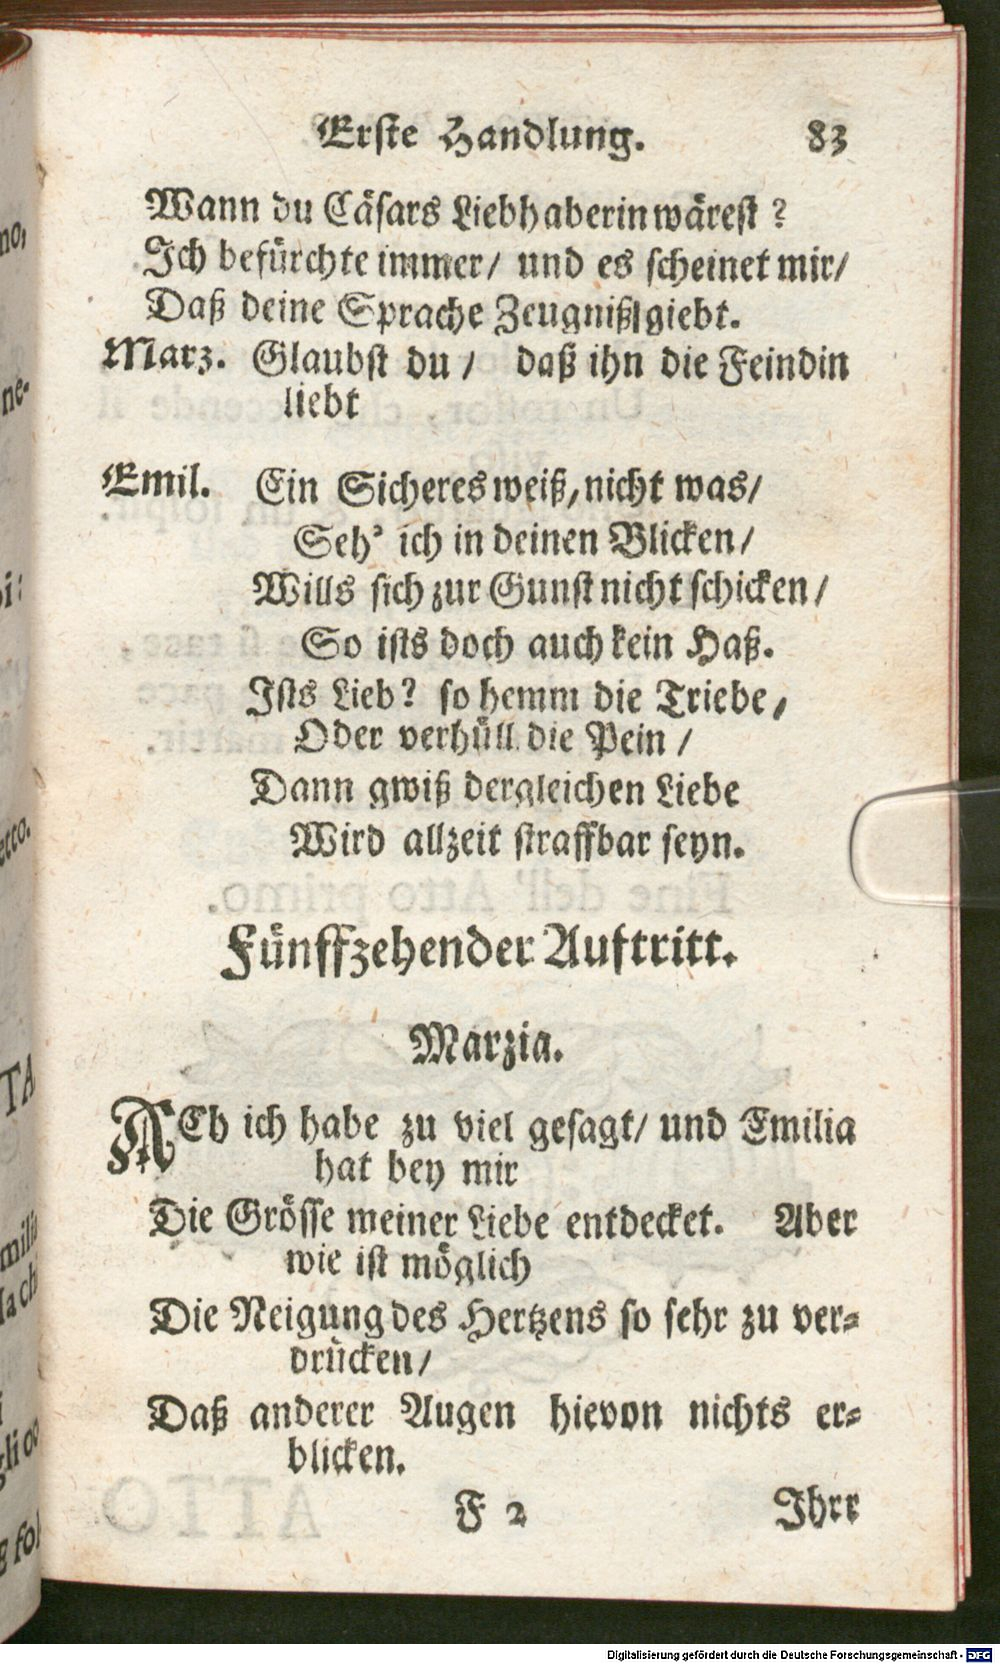 Erste Handlung. 83
Wann du Cäsars Liebhaberin wärest ?
Ich befürchte immer/ und es scheinet mir/
Daß deine Sprache Zeugniß giebt.
Marz. Glaubst du / daß ihn die Feindin
liebt
Emil. Ein Sicheres weiß, nicht was/
Seh' ich in deinen Blicken/
Wills sich zur Gunst nicht schicken/
So ists doch auch kein Haß.
Ists Lieb? so hemm die Triebe,
Oder verhüll die Pein /
Dann gwiß dergleichen Liebe
Wird allzeit straffbar seyn.
Fünffzehender Auftritt.
Marzia.
ACh ich habe zu viel gesagt/ und Emilia
hat bey mir
Die Grösse meiner Liebe entdecket. Aber
wie ist möglich
Die Neigung des Hertzens so sehr zu ver-
drücken/
Daß anderer Augen hievon nichts er-
blicken.
F 2 Ihrr
Digitalisierung gefördert durch die Deutsche Forschungsgemeinschaft - DFG